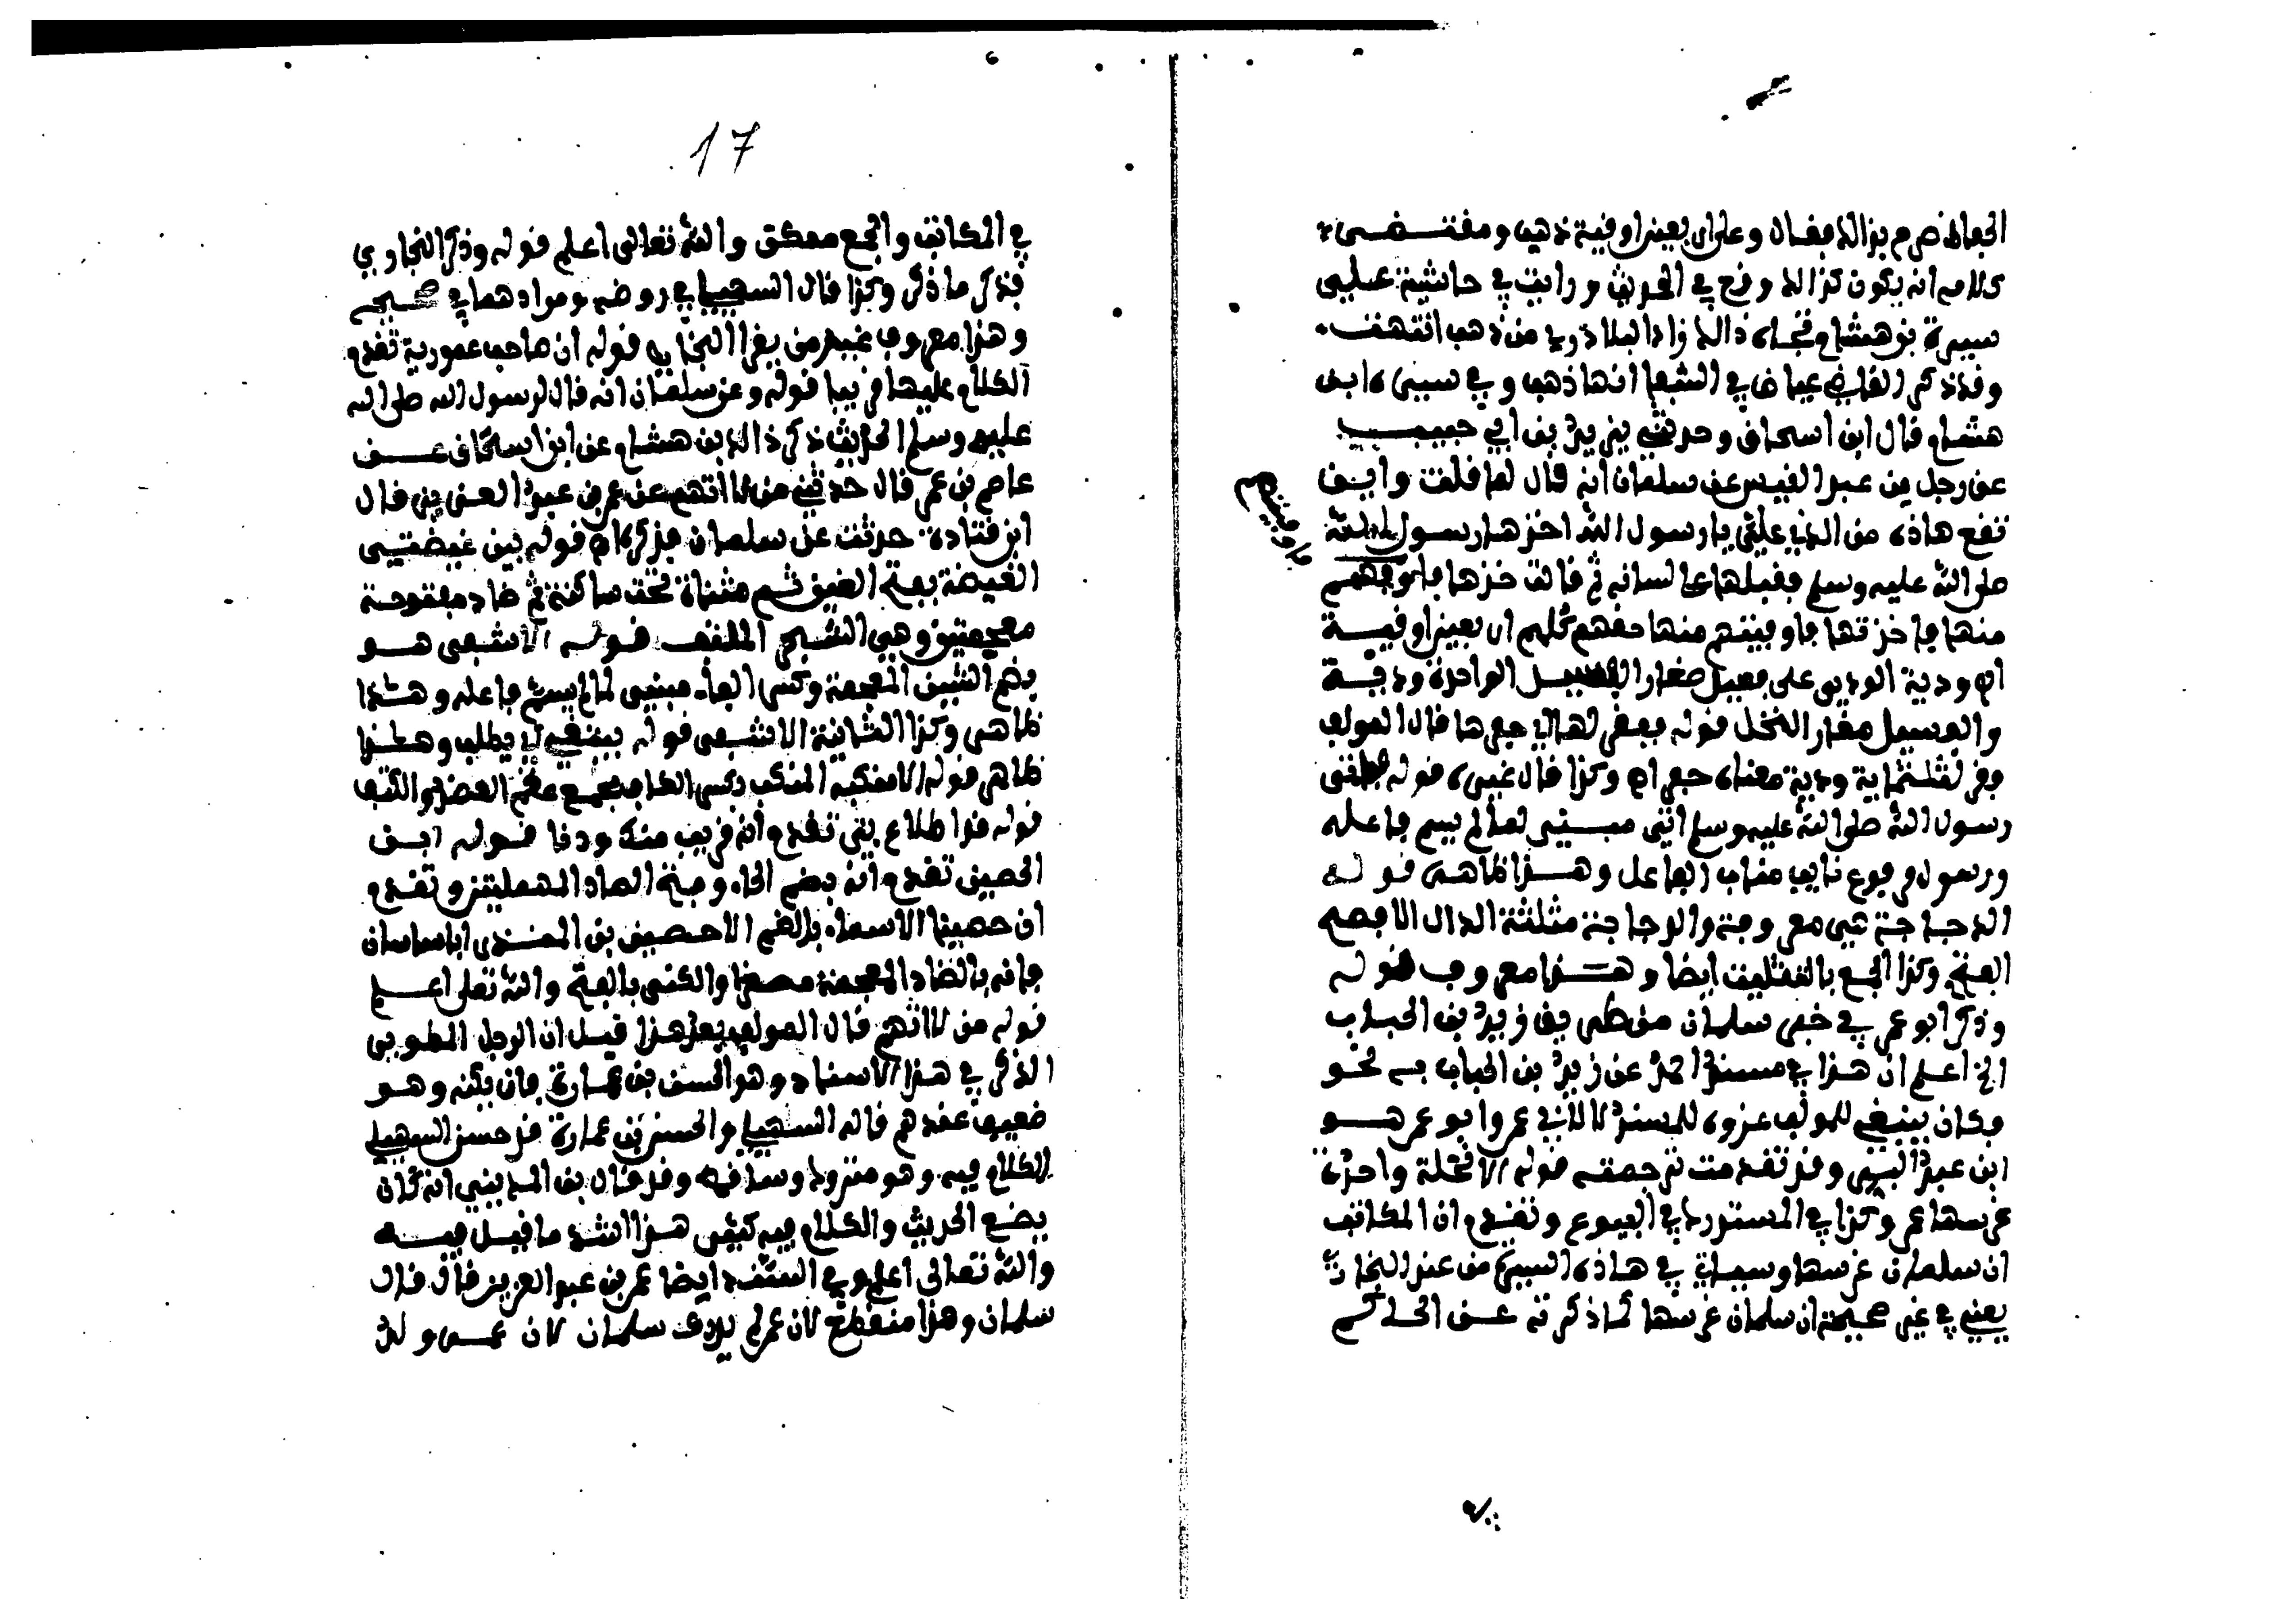 الحفاظ صرح بذالك فقال وعلى اربعين اوقية ذهب ومقتضى
كلامه انه يكون كذالك وقع في الحديث ورايت في حاشية على
سيرة بن هشام تجاه ذالك زاد البلاذري من ذهب انتهت
وقد ذكر القاضي عياض في الشفا انها ذهب وفي سيرة ابن
هشام قال ابن اسحاق وحدثني يزيد بن ابي حبيب
عن رجل من عبد القيس عن سلمان انه قال لما قلت واين
تقع هاذه من الذي علي يا رسول الله اخذها رسول الله
صلى الله عليه وسلم فقبلها على لسانه ثم قالت خذها فاوفهم
منها فاخذتها فاوفيتهم منها حقهم كلهم اربعين اوقية
اه ودية الودي على فعيل صغار الفسيل الواحدة ودية
والفسيل صغار النخل قوله ففقر لها اي حفر لها قال المولف
وفقر لثلثماية ودية معناه حفر اه وكذا قال غيره قوله فاتى
رسول الله صلى الله عليه وسلم اتي مبني لما لم يسم فاعله
ورسول مرفوع نايب مناب الفاعل وهذا ظاهر قوله
الدجاجة هي معروفة والدجاجة مثلثة الدال الافصح
الفتح وكذا الجمع بالتثليث ايضا وهذا معروف قوله
وذكر ابو عمر في خبر سلمان من طريق زيد بن الحباب
الخ اعلم ان هذا في مسند احمد عن زيد بن الحباب به نحو
وكان ينبغي للمولف عزوه للمسند لا لابي عمر وابو عمر هو
ابن عبد البر وقد تقدمت ترجمته قوله الا نخلة واحدة
غرسها عمر وكذا في المستدرك في البيوع وتقدم ان المكاتب
ان سلمان غرسها وسياتي في هاذه السيرة من عند البخاري
يعني في غير صحيحه ان سلمان غرسها كما ذكرته عن الحاكم
فاوفيتهم
17
في المكاتب والجمع ممكن والله تعالى اعلم قوله وذكر البخاري
فذكر ما ذكر وكذا قال السهيلي في روضه ومرادهما في صحيحه
وهذا معروف عند من يقرا البخاري قوله ان صاحب عمورية تقدم
الكلام عليها قريبا قوله وعن سلمان انه قال لرسول الله صلى الله
عليه وسلم الحديث ذكر ذالك بن هشام عن ابن اسحاق عن
عاصم بن عمر قال حدثني من لا اتهم عن عمر بن عبد العزيز قال
ابن قتادة حدثت عن سلمان فذكره اه قوله بين غيضتين
الغيضة بفتح الغين ثم مثناة تحت ساكنة ثم ضاد مفتوحة
معجمتين وهي الشجر الملتف قوله الا شفي هو
بضم الشين المعجمة وكسر الفا مبني لما لم يسم فاعله وهذا
ظاهر وكذا الثانية الا شفي قوله يبتغيه اي يطلب وهذا
ظاهر قوله الا منكبه المنكب بكسر الكاف مجمع عظم العضد والكتف
قوله قد اظلك زمن تقدم انه قرب منك ودنا قوله ابن
الحصين تقدم انه بضم الحاء وفتح الصاد المهملتين وتقدم
ان حصينا الاسماء بالضم الا حضين بن المنذر ابا ساسان
فانه بالضاد المعجمة مصغرا والكنى بالفتح والله تعلى اعلم
قوله من لا اتهم قال المولف بعد هذا قيل ان الرجل المطوي
الذكر في هذا الاسناد وهو الحسن بن عمارة فان يكنه وهو
ضعيف عندهم قاله السهيلي والحسن بن عمارة قد حسن السهيلي
الكلام فيه وهو متروك وساقط وقد قال بن المديني انه كان
يضع الحديث والكلام فيه كثير هذا اشد ما قيل فيه
والله تعالى اعلم وفي السند ايضا عمر بن عبد العزيز قال قال
سلمان وهذا منقطع لان عمر لم يدرك سلمان لان عمر ولد